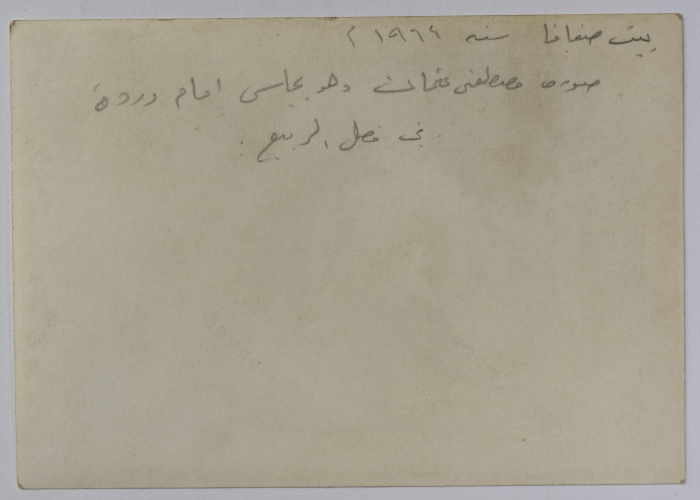 بيت صفافا سنه ١٩٦٤ م
صوره مصطفى عثمان وهو جالس امام وردة
في فصل الربيع .